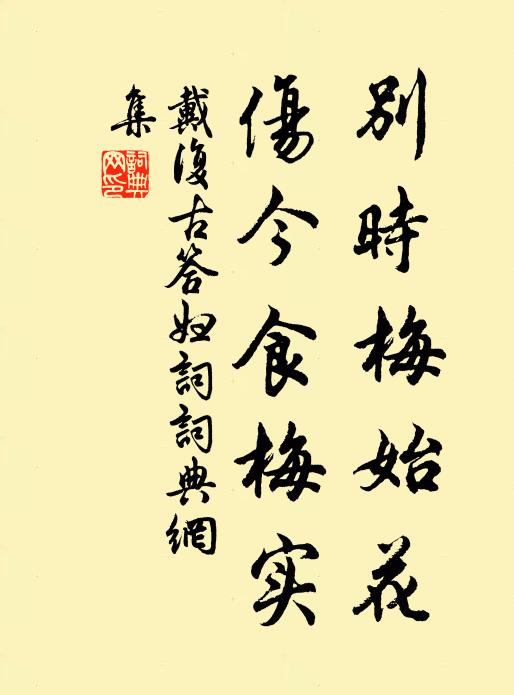 別時梅始花
傷今食梅实
戴復古答妞詞詞典網
集
詞典
网印